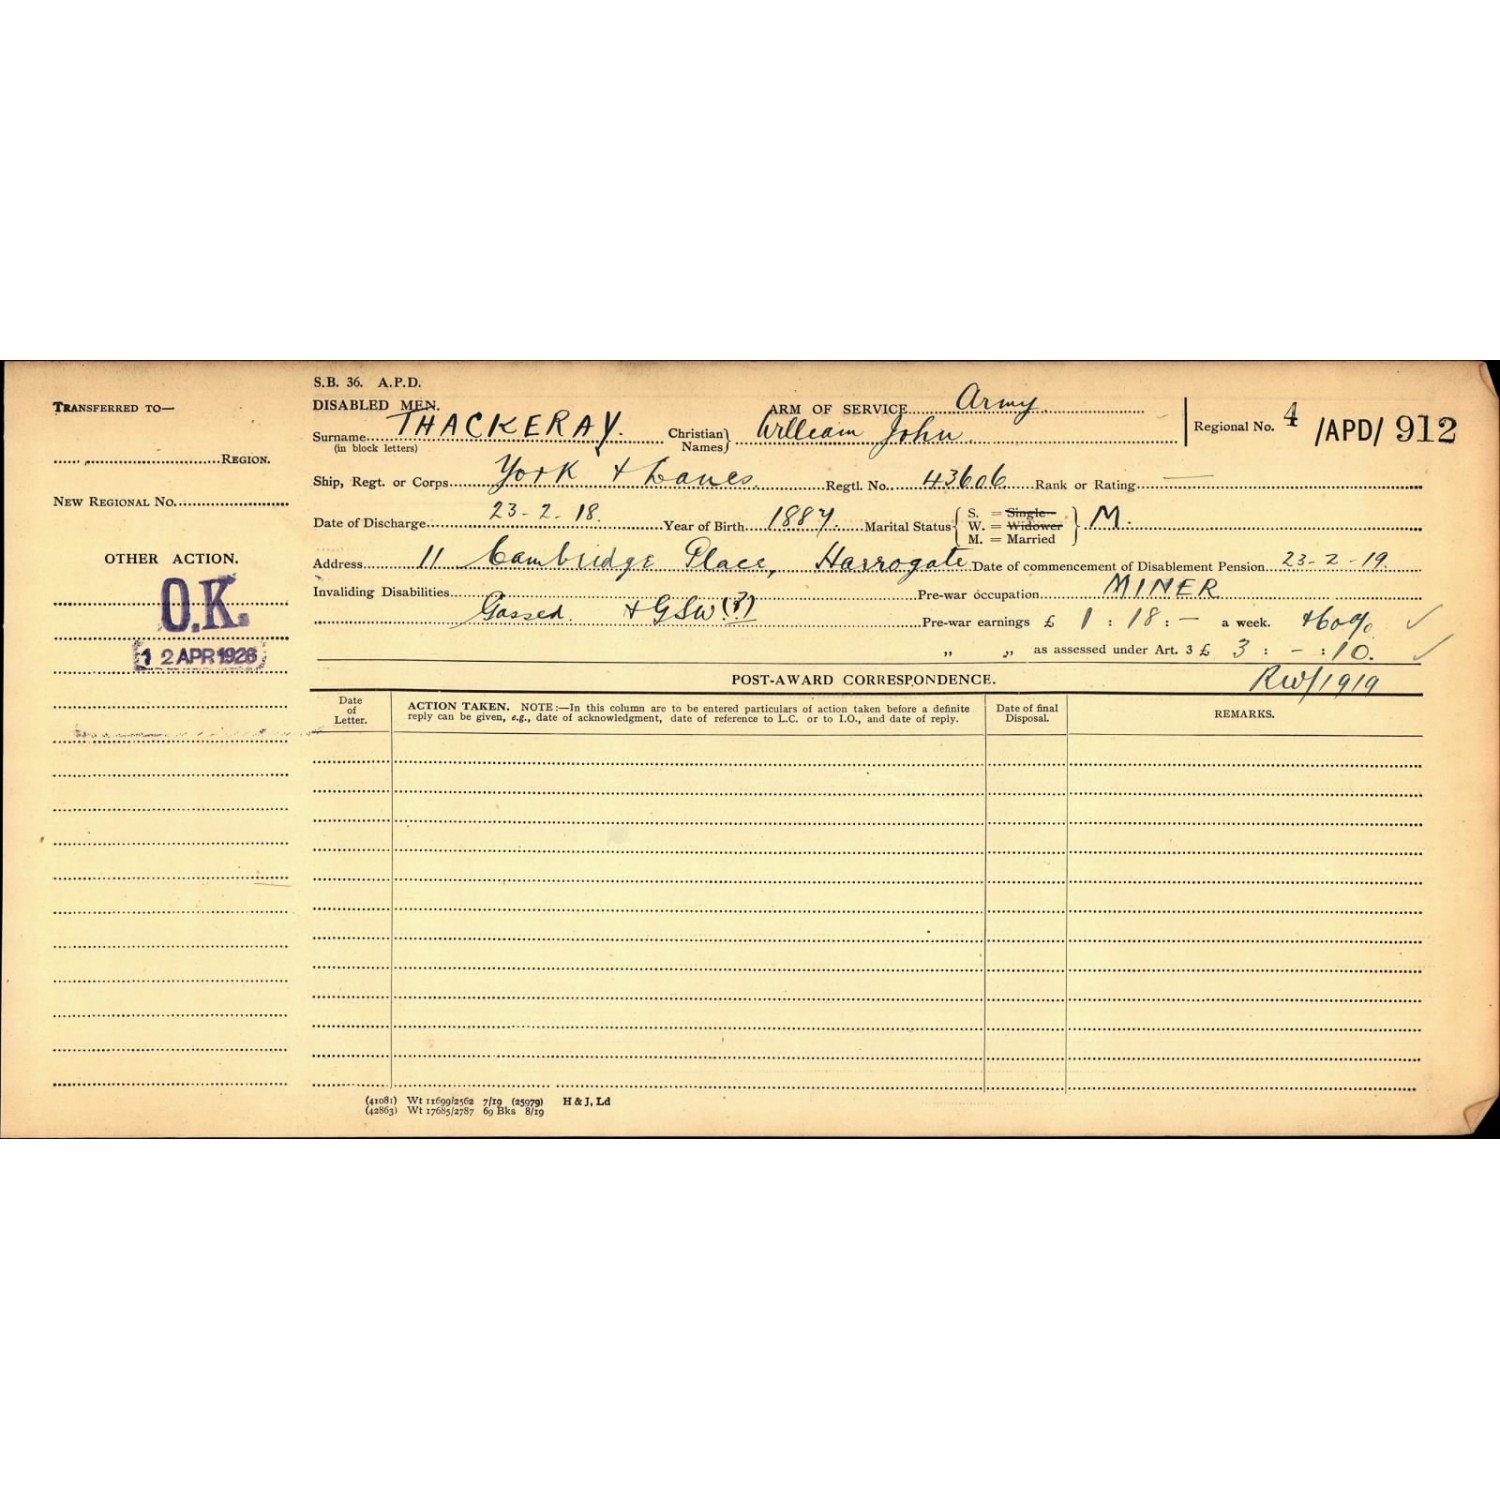 S.B. 36. A.P.D.
TRANSFERRED TO—
REGION.
NEW REGIONAL No.
OTHER ACTION.
O.K.
12 APR 1926
DISABLED MEN.
ARM OF SERVICE Army
Surname THACKERAY.
(in block letters)
Christian Names} William John
Regional No. 4 /APD/ 912
Ship, Regt. or Corps York + Lancs. Regtl. No. 43606 Rank or Rating —
Date of Discharge 23-2-18. Year of Birth 1887. Marital Status { S. = Single W. = Widower M. = Married } M.
Address 11 Cambridge Place, Harrogate Date of commencement of Disablement Pension 23-2-19.
Invaliding Disabilities Pre-war occupation MINER
Gassed. + GSW (?) Pre-war earnings £ 1 : 18 : — a week. +60% ✓
„ „ as assessed under Art. 3 £ 3 : - : 10. ✓
POST-AWARD CORRESPONDENCE. RW/1919
Date of Letter.
ACTION TAKEN. NOTE:—In this column are to be entered particulars of action taken before a definite
reply can be given, e.g., date of acknowledgment, date of reference to L.C. or to I.O., and date of reply.
Date of final Disposal.
REMARKS.
(41081) Wt 11699/2562 7/19 (25979) H & J, Ld
(42863) Wt 17685/2787 69 Bks 8/19